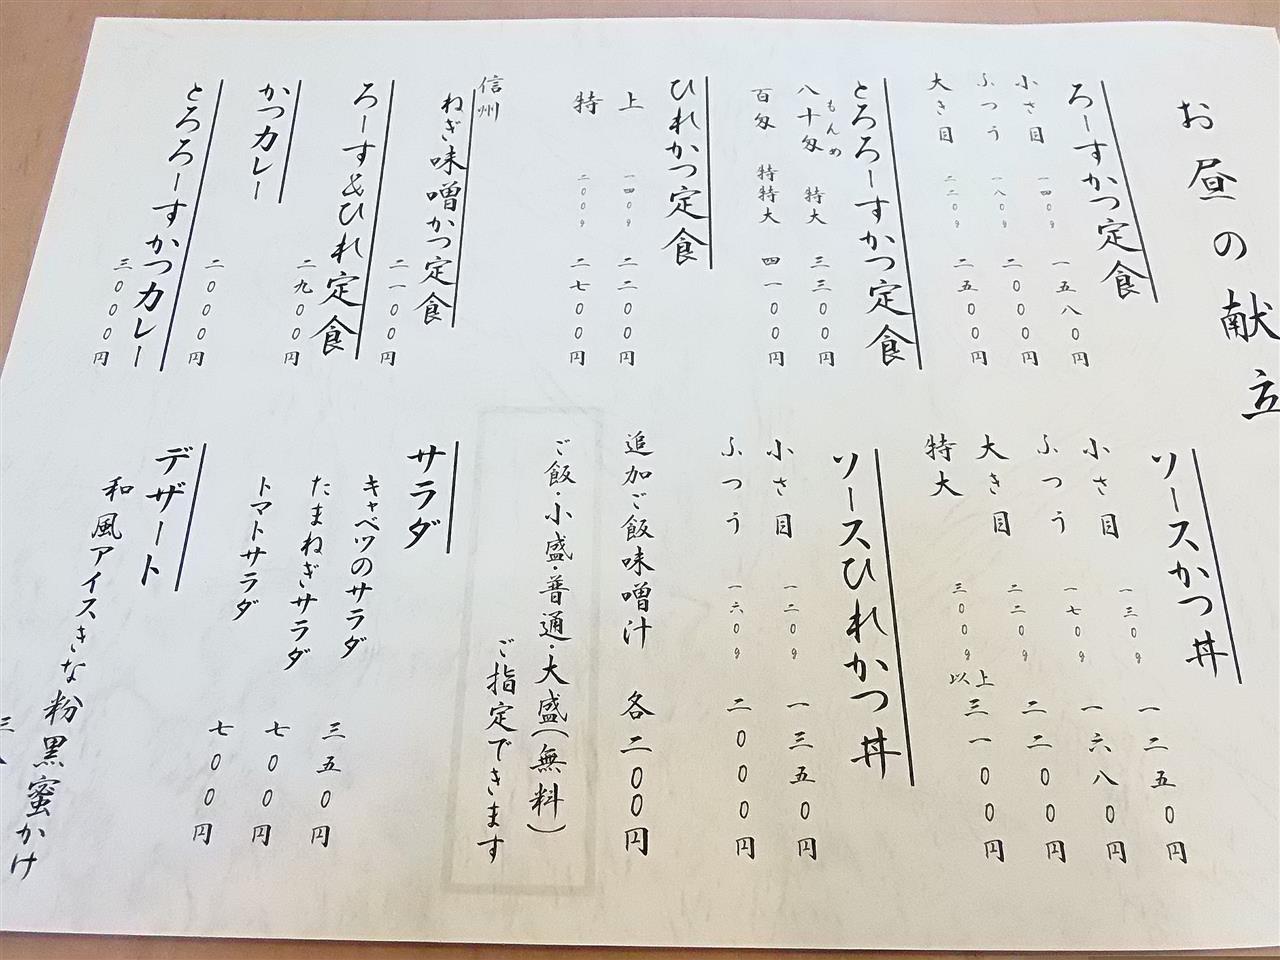 お昼の献立
ろーすかつ定食
小さ目 一四〇g 一五八〇円
ふつう 一八〇g 二〇〇〇円
大き目 二二〇g 二五〇〇円
とろろーすかつ定食
もんめ
八十匁 特大 三三〇〇円
百匁 特特大 四一〇〇円
ひれかつ定食
上 一四〇g 二二〇〇円
特 二〇〇g 二七〇〇円
信州
ねぎ味噌かつ定食
二一〇〇円
ろーす&ひれ定食
二九〇〇円
かつカレー
二〇〇〇円
とろろーすかつカレー
三〇〇〇円
ソースかつ丼
小さ目 一三〇g 一二五〇円
ふつう 一七〇g 一六八〇円
大き目 二二〇g 二二〇〇円
特大 三〇〇g以上 三一〇〇円
ソースひれかつ丼
小さ目 一二〇g 一三五〇円
ふつう 一六〇g 二〇〇〇円
追加ご飯味噌汁 各二〇〇円
ご飯・小盛・普通・大盛(無料)
ご指定できます
サラダ
キャベツのサラダ 三五〇円
たまねぎサラダ 七〇〇円
トマトサラダ 七〇〇円
デザート
和風アイスきな粉黒蜜かけ
三